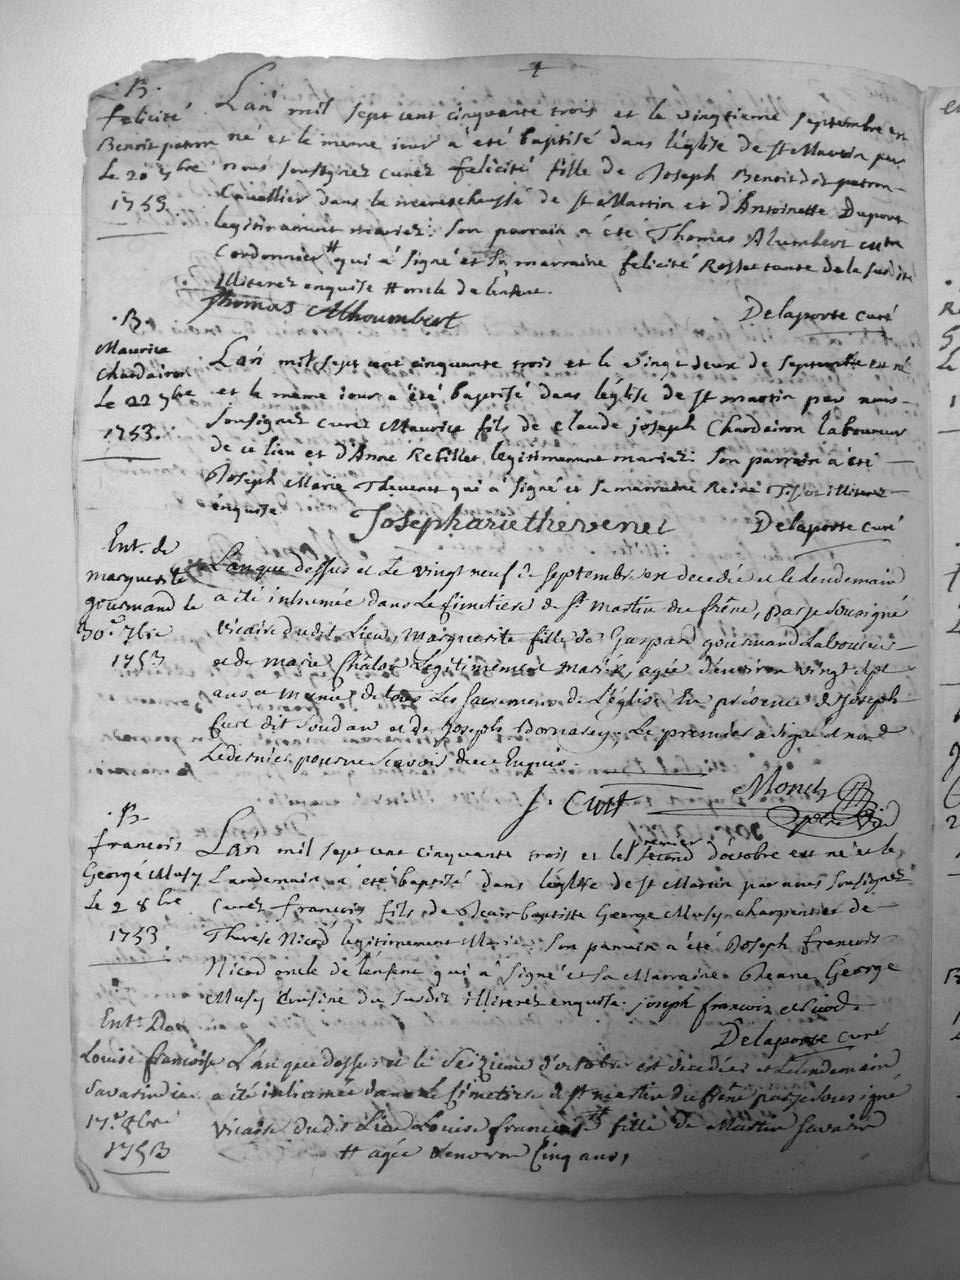 .B.
felicité
Benoit patron
Le 20 7bre
1753
L'an mil sept cent cinquante trois et le vingtieme septembre est
né et le meme iour a été baptisé dans l'église de st Martin par
nous soussignez curez felicité fille de Joseph Benoit dit patron
Cavallier dans la marechaussé de st Martin et d'Antoinette Dupont
legitimement mariez. Son parrain a été Thomas Alumbert
Cordonnier # qui a signé et sa marraine felicité Rosset tante de la susdite
illiterez enquise # oncle de l'enfant.
Thomas Alhoumbert
Delaporte curé
.B.
Maurice
Chardairon
Le 22 7bre
1753.
L'an mil sept cent cinquante trois et le vingt deux de septembre est né
et le même iour a été baptisé dans l'église de st martin par nous
soussignez curez Maurice fils de claude joseph Chardairon laboureur
de ce lieu et d'Anne Rebillet legitimement mariez. Son parrain a été
Joseph Marie Thevenet qui a signé et sa marraine Reine Tissot illiterez
enquise
Joseph marie thevenet
Delaporte curé
Ent. de
marguerite
gourmand le
30.e 7bre
1753
L'an que dessus et Le vingt neuf septembre est decedée et le lendemain
a été inhumée dans Le Cimetiere de St Martin du frêne, par je soussigné
vicaire dudit Lieu, Marguerite fille de Gaspard gourmand Laboureur
et de marie Chalon Legitimement mariés, agée d'environ vingt sept
ans et munie de tous Les sacremens de L'église En présence de Joseph
Curt dit Soudan et de Joseph Bornarey. Le premier a signé et non
Le dernier pour ne scavoir de ce Enquis.
J. Curt
Monet
ptre Vic
.B.
francois
George Musy
Le 2 8bre
1753
premier
L'an mil sept cent cinquante trois et le second d'octobre est né et le
Lendemain a été baptisé dans l'église de st Martin par nous soussignez
curez francois fils de Jean baptiste George Musy charpentier de
Therese Nicod legitimement Mariez. Son parrain a été Joseph francois
Nicod oncle de l'enfant qui a signé et sa Marraine Jeanne George
Musy cousine du susdit illiterez enquise. joseph francoix Nicod
Delaporte curé
Ent. De
Louise francoise
Savarin die
17.e 8bre
1753
L'an que dessus et le Seizieme d'octobre est decedée et Le lendemain,
a été inhumée dans Le Cimetiere de St martin du frêne par je soussigné
vicaire dudit Lieu Louise francoise # fille de Martin Savarin
# agée d'environ Cinq ans,